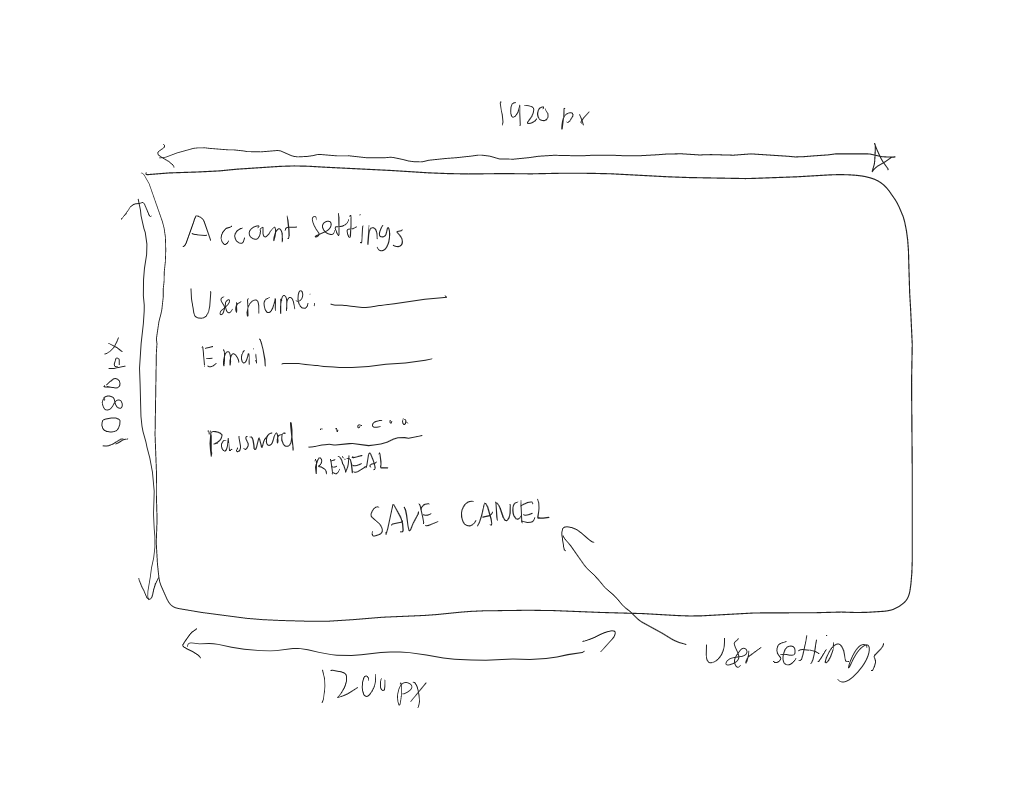 1920 px
Account settings
Username:
Email
Password
REVEAL
SAVE CANCEL
1080px
User settings
1200 px